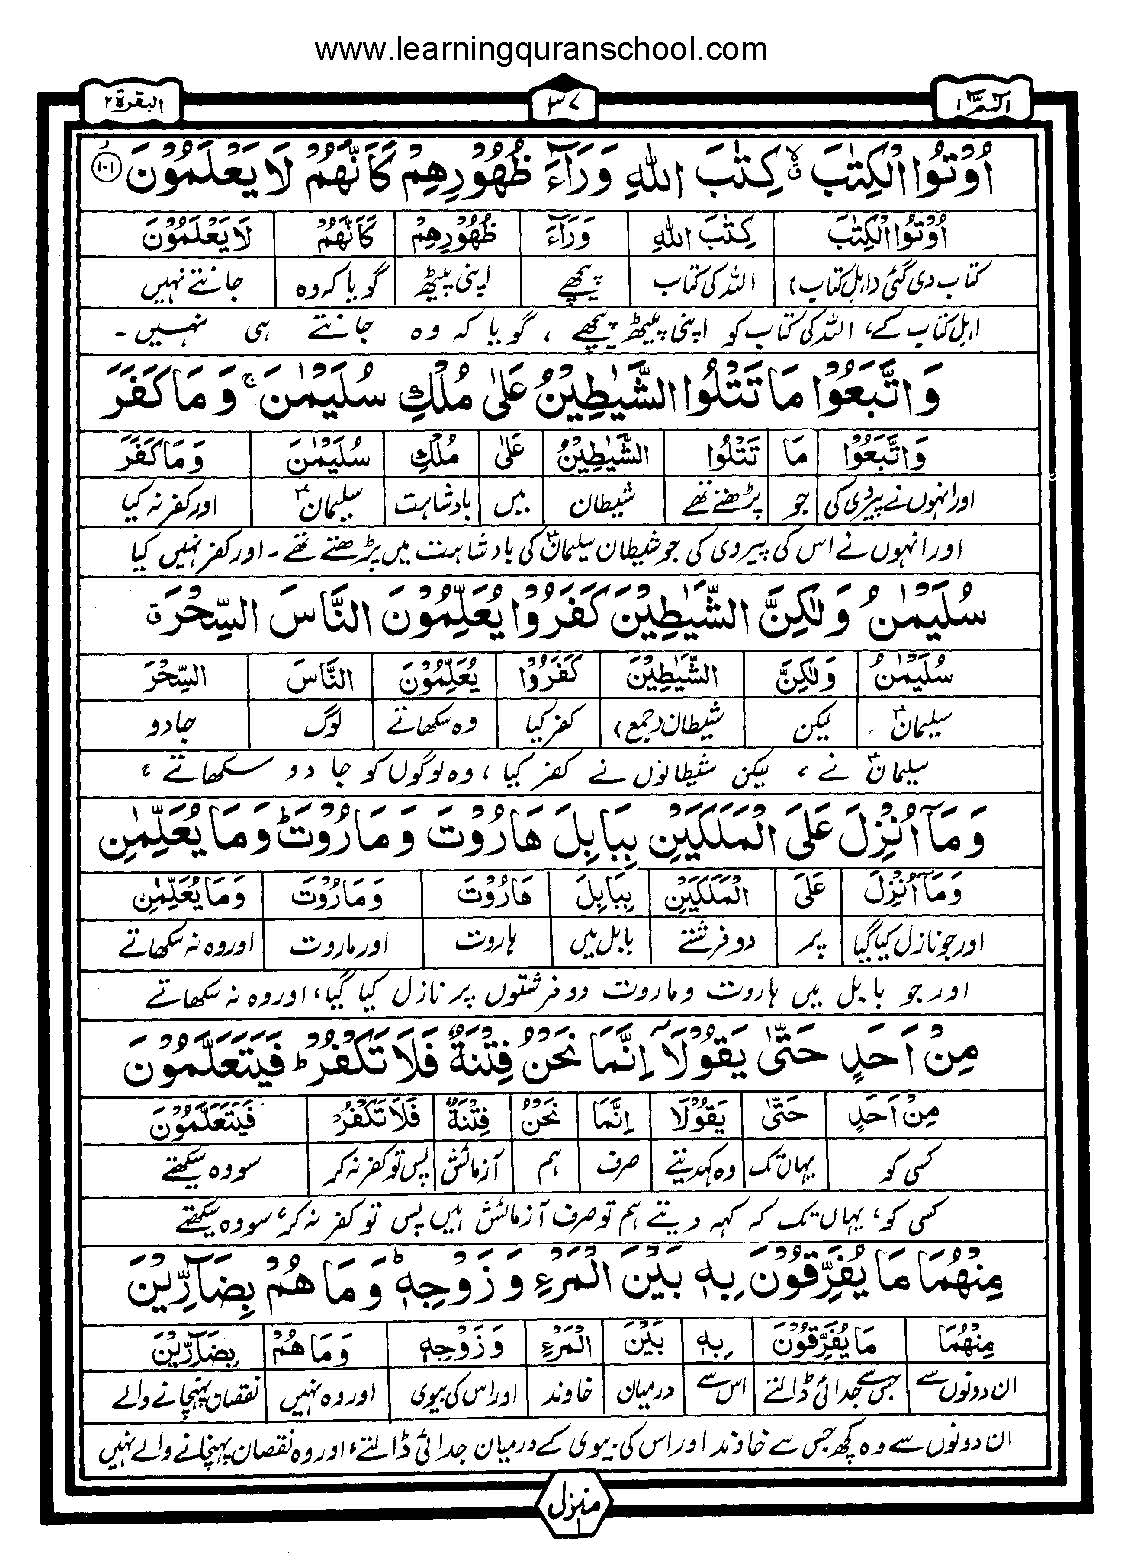 www.learningquranschool.com
الٓمّٓ ١ ٣٧ البقرة ٢
اُوْتُوا الْكِتٰبَ ۙ كِتٰبَ اللّٰهِ وَرَآءَ ظُهُوْرِهِمْ كَاَنَّهُمْ لَا يَعْلَمُوْنَ ۝١٠١
اُوْتُوا الْكِتٰبَ كِتٰبَ اللّٰهِ وَرَآءَ ظُهُوْرِهِمْ كَاَنَّهُمْ لَا يَعْلَمُوْنَ
کتاب دی گئی (اہل کتاب) اللہ کی کتاب پیچھے اپنی پیٹھ گویا کہ وہ جانتے نہیں
اہل کتاب کے، اللہ کی کتاب کو اپنی پیٹھ پیچھے ، گویا کہ وہ جانتے ہی نہیں ۔
وَاتَّبَعُوْا مَا تَتْلُوا الشَّيٰطِيْنُ عَلٰى مُلْكِ سُلَيْمٰنَ ۚ وَمَا كَفَرَ
وَاتَّبَعُوْا مَا تَتْلُوا الشَّيٰطِيْنُ عَلٰى مُلْكِ سُلَيْمٰنَ وَمَا كَفَرَ
اور انہوں نے پیروی کی جو پڑھتے تھے شیطان میں بادشاہت سلیمانؑ اور کفر نہ کیا
اور انہوں نے اس کی پیروی کی جو شیطان سلیمانؑ کی بادشاہت میں پڑھتے تھے ۔ اور کفر نہیں کیا
سُلَيْمٰنُ وَلٰكِنَّ الشَّيٰطِيْنَ كَفَرُوْا يُعَلِّمُوْنَ النَّاسَ السِّحْرَ ۗ
سُلَيْمٰنُ وَلٰكِنَّ الشَّيٰطِيْنَ كَفَرُوْا يُعَلِّمُوْنَ النَّاسَ السِّحْرَ
سلیمانؑ لیکن شیطان (جمع) کفر کیا وہ سکھاتے لوگ جادو
سلیمانؑ نے ، لیکن شیطانوں نے کفر کیا ، وہ لوگوں کو جادو سکھاتے ،
وَمَآ اُنْزِلَ عَلَى الْمَلَكَيْنِ بِبَابِلَ هَارُوْتَ وَمَارُوْتَ ؕ وَمَا يُعَلِّمٰنِ
وَمَآ اُنْزِلَ عَلَى الْمَلَكَيْنِ بِبَابِلَ هَارُوْتَ وَمَارُوْتَ وَمَا يُعَلِّمٰنِ
اور جو نازل کیا گیا پر دو فرشتے بابل میں ہاروت اور ماروت اور وہ نہ سکھاتے
اور جو بابل میں ہاروت و ماروت دو فرشتوں پر نازل کیا گیا، اور وہ نہ سکھاتے
مِنْ اَحَدٍ حَتّٰى يَقُوْلَآ اِنَّمَا نَحْنُ فِتْنَةٌ فَلَا تَكْفُرْ ؕ فَيَتَعَلَّمُوْنَ
مِنْ اَحَدٍ حَتّٰى يَقُوْلَا اِنَّمَا نَحْنُ فِتْنَةٌ فَلَا تَكْفُرْ فَيَتَعَلَّمُوْنَ
کسی کو یہاں تک وہ کہدیتے صرف ہم آزمائش پس تو کفر نہ کر سو وہ سیکھتے
کسی کو، یہاں تک کہ کہہ دیتے ہم تو صرف آزمائش ہیں پس تو کفر نہ کر، سو وہ سیکھتے
مِنْهُمَا مَا يُفَرِّقُوْنَ بِهٖ بَيْنَ الْمَرْءِ وَزَوْجِهٖ ؕ وَمَا هُمْ بِضَآرِّيْنَ
مِنْهُمَا مَا يُفَرِّقُوْنَ بِهٖ بَيْنَ الْمَرْءِ وَزَوْجِهٖ وَمَا هُمْ بِضَآرِّيْنَ
ان دونوں سے جس سے جدائی ڈالتے اس سے درمیان خاوند اور اس کی بیوی اور وہ نہیں نقصان پہنچانے والے
ان دونوں سے وہ کچھ جس سے خاوند اور اس کی بیوی کے درمیان جدائی ڈالتے، اور وہ نقصان پہنچانے والے نہیں
منزل ١